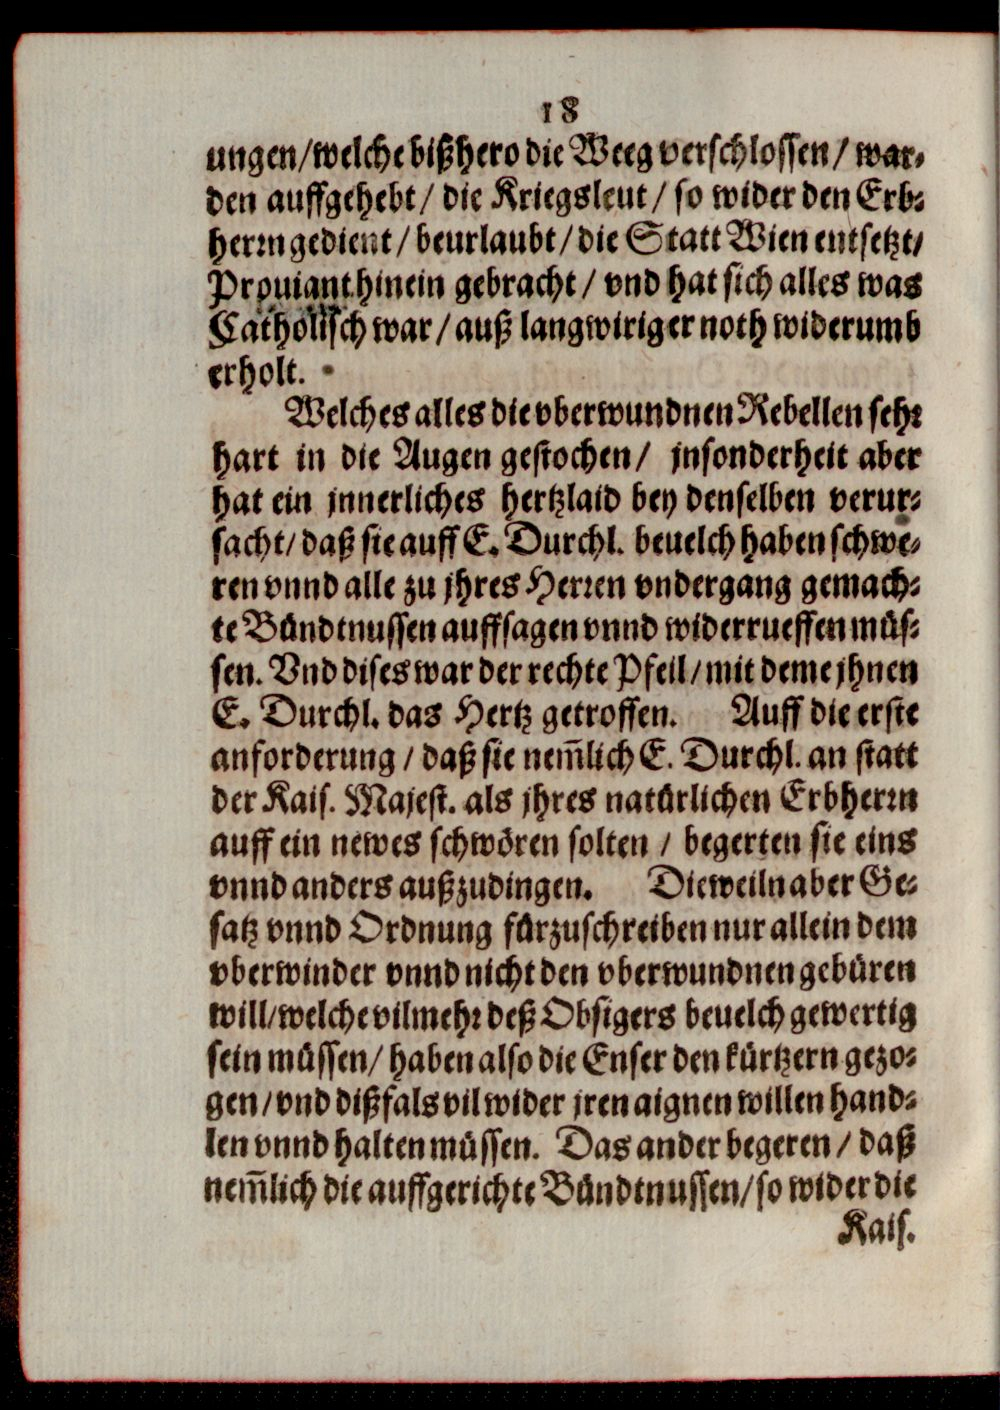 18
ungen/welche bißhero die Weeg verschlossen/ war-
den auffgehebt/ die Kriegsleut/ so wider den Erb-
herrn gedient/ beurlaubt/ die Statt Wien entsetzt/
Prouiant hinein gebracht/ vnd hat sich alles was
Catholisch war/ auß langwiriger noth widerumb
erholt.
Welches alles die vberwundnen Rebellen sehr
hart in die Augen gestochen/ jnsonderheit aber
hat ein jnnerliches hertzlaid bey denselben verur-
sacht/ daß sie auff E. Durchl. beuelch haben schwe-
ren vnnd alle zu jhres Herren vndergang gemach-
te Bündtnussen auffsagen vnnd widerrueffen müs-
sen. Vnd dises war der rechte Pfeil/ mit deme jhnen
E. Durchl. das Hertz getroffen. Auff die erste
anforderung/ daß sie nem̃lich E. Durchl. an statt
der Kais. Majest. als jhres natürlichen Erbherrn
auff ein newes schwören solten/ begerten sie eins
vnnd anders außzudingen. Dieweiln aber Ge-
satz vnnd Ordnung fürzuschreiben nur allein dem
vberwinder vnnd nicht den vberwundnen gebüren
will/welche vilmehr deß Obsigers beuelch gewertig
sein müssen/ haben also die Enser den kürtzern gezo-
gen/ vnd dißfals vil wider jren aignen willen hand-
len vnnd halten müssen. Das ander begeren/ daß
nem̃lich die auffgerichte Bündtnussen/ so wider die
Kais.